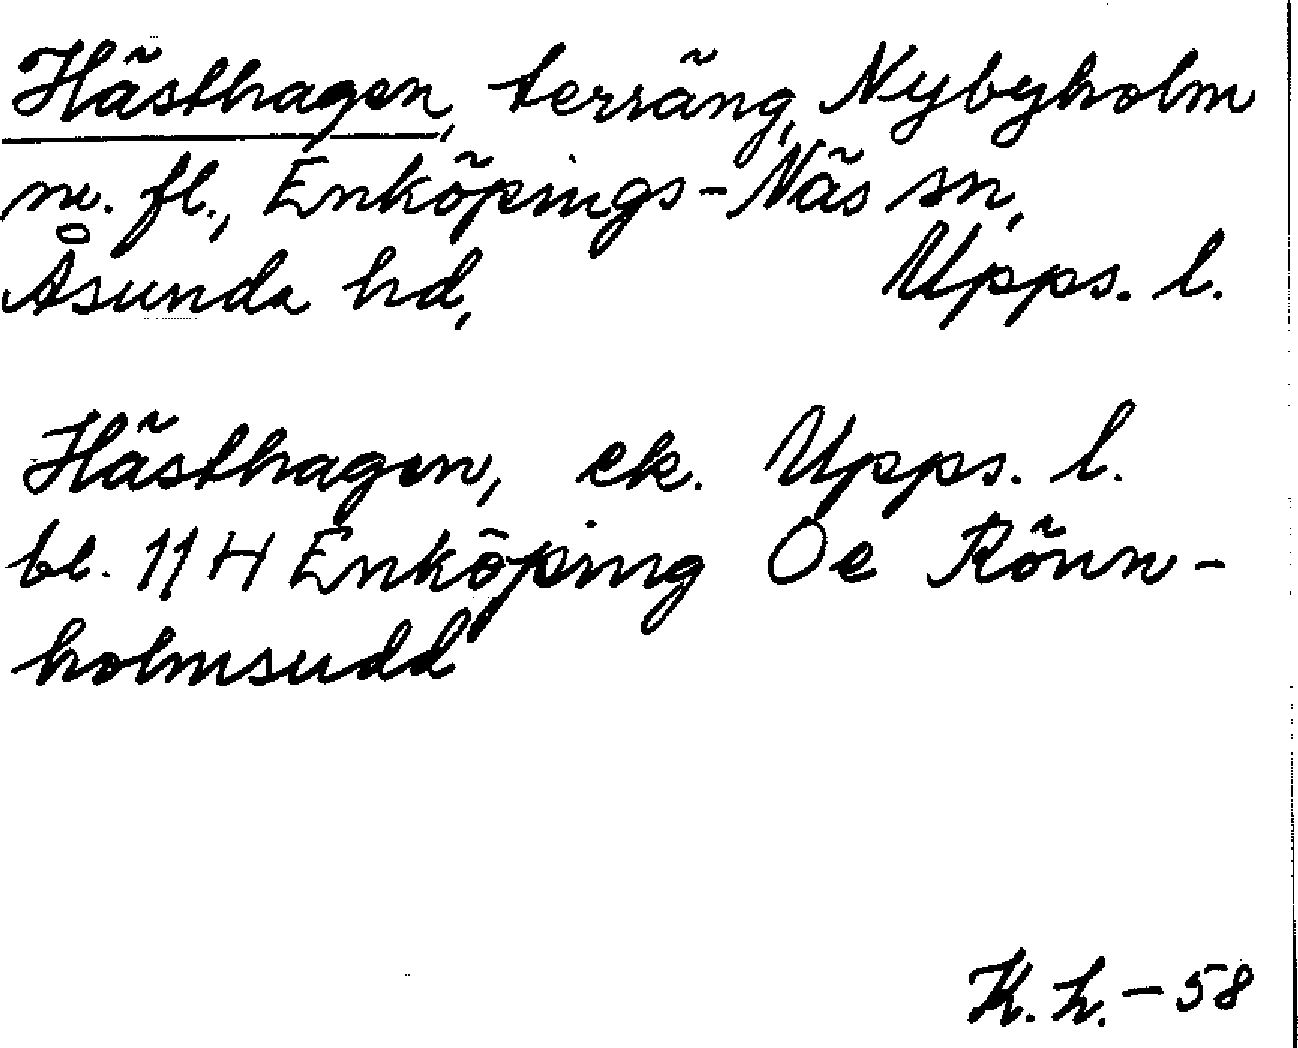 Hästhagen, terräng, Nybyholm
m. fl., Enköpings-Näs sn,
Åsunda hd, Upps. l.
Hästhagen, ek. Upps. l.
bl. 11 H Enköping Oe Rönn-
holmsudd
K. h. - 58